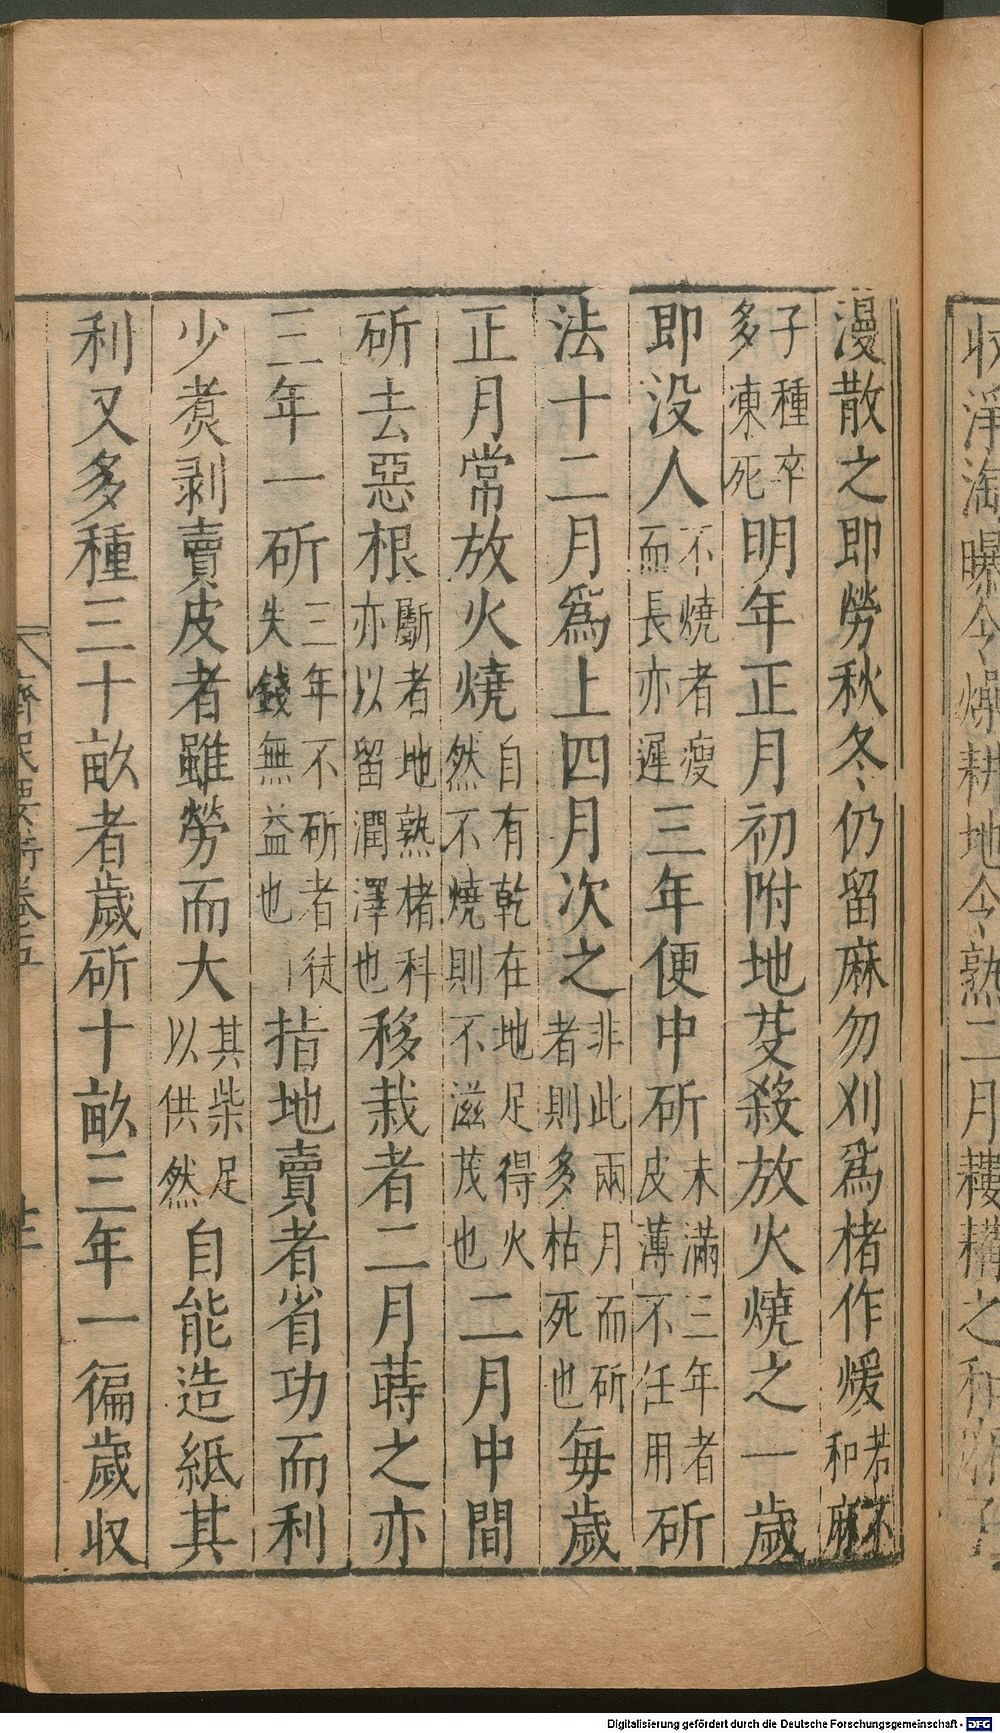 收淨淘曝令燥耕地令熟二月耬耩之和
漫散之即勞秋冬仍留麻勿刈爲楮作煖若不和麻
子種卒多凍死明年正月初附地芟殺放火燒之一歲
即没人不燒者瘦而長亦遲三年便中斫未滿三年者皮薄不任用斫
法十二月爲上四月次之非此兩月而斫者則多枯死也每歲
正月常放火燒自有乾在地足得火然不燒則不滋茂也二月中間
斫去惡根斸者地熟楮科亦以留潤澤也移栽者二月蒔之亦
三年一斫三年不斫者徒失錢無益也指地賣者省功而利
少煑剥賣皮者雖勞而大其柴足以供然自能造紙其
利又多種三十畝者歲斫十畝三年一徧歲収
齊民要術卷五
Digitalisierung gefördert durch die Deutsche Forschungsgemeinschaft - DFG